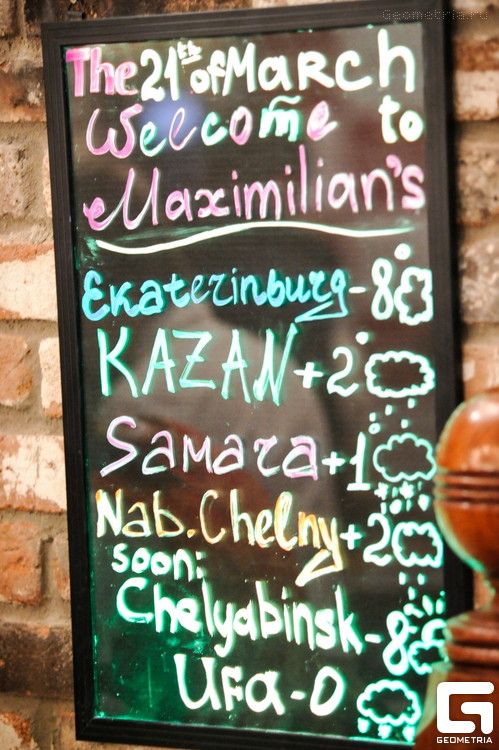 Geometria.ru
The 21th of MaRch
Welcome to
Maximilian's
Ekaterinburg-8°
KAZAN+2°
Samara+1°
Nab.Chelny+2°
soon:
Chelyabinsk-8°
Ufa-0
G
GEOMETRIA